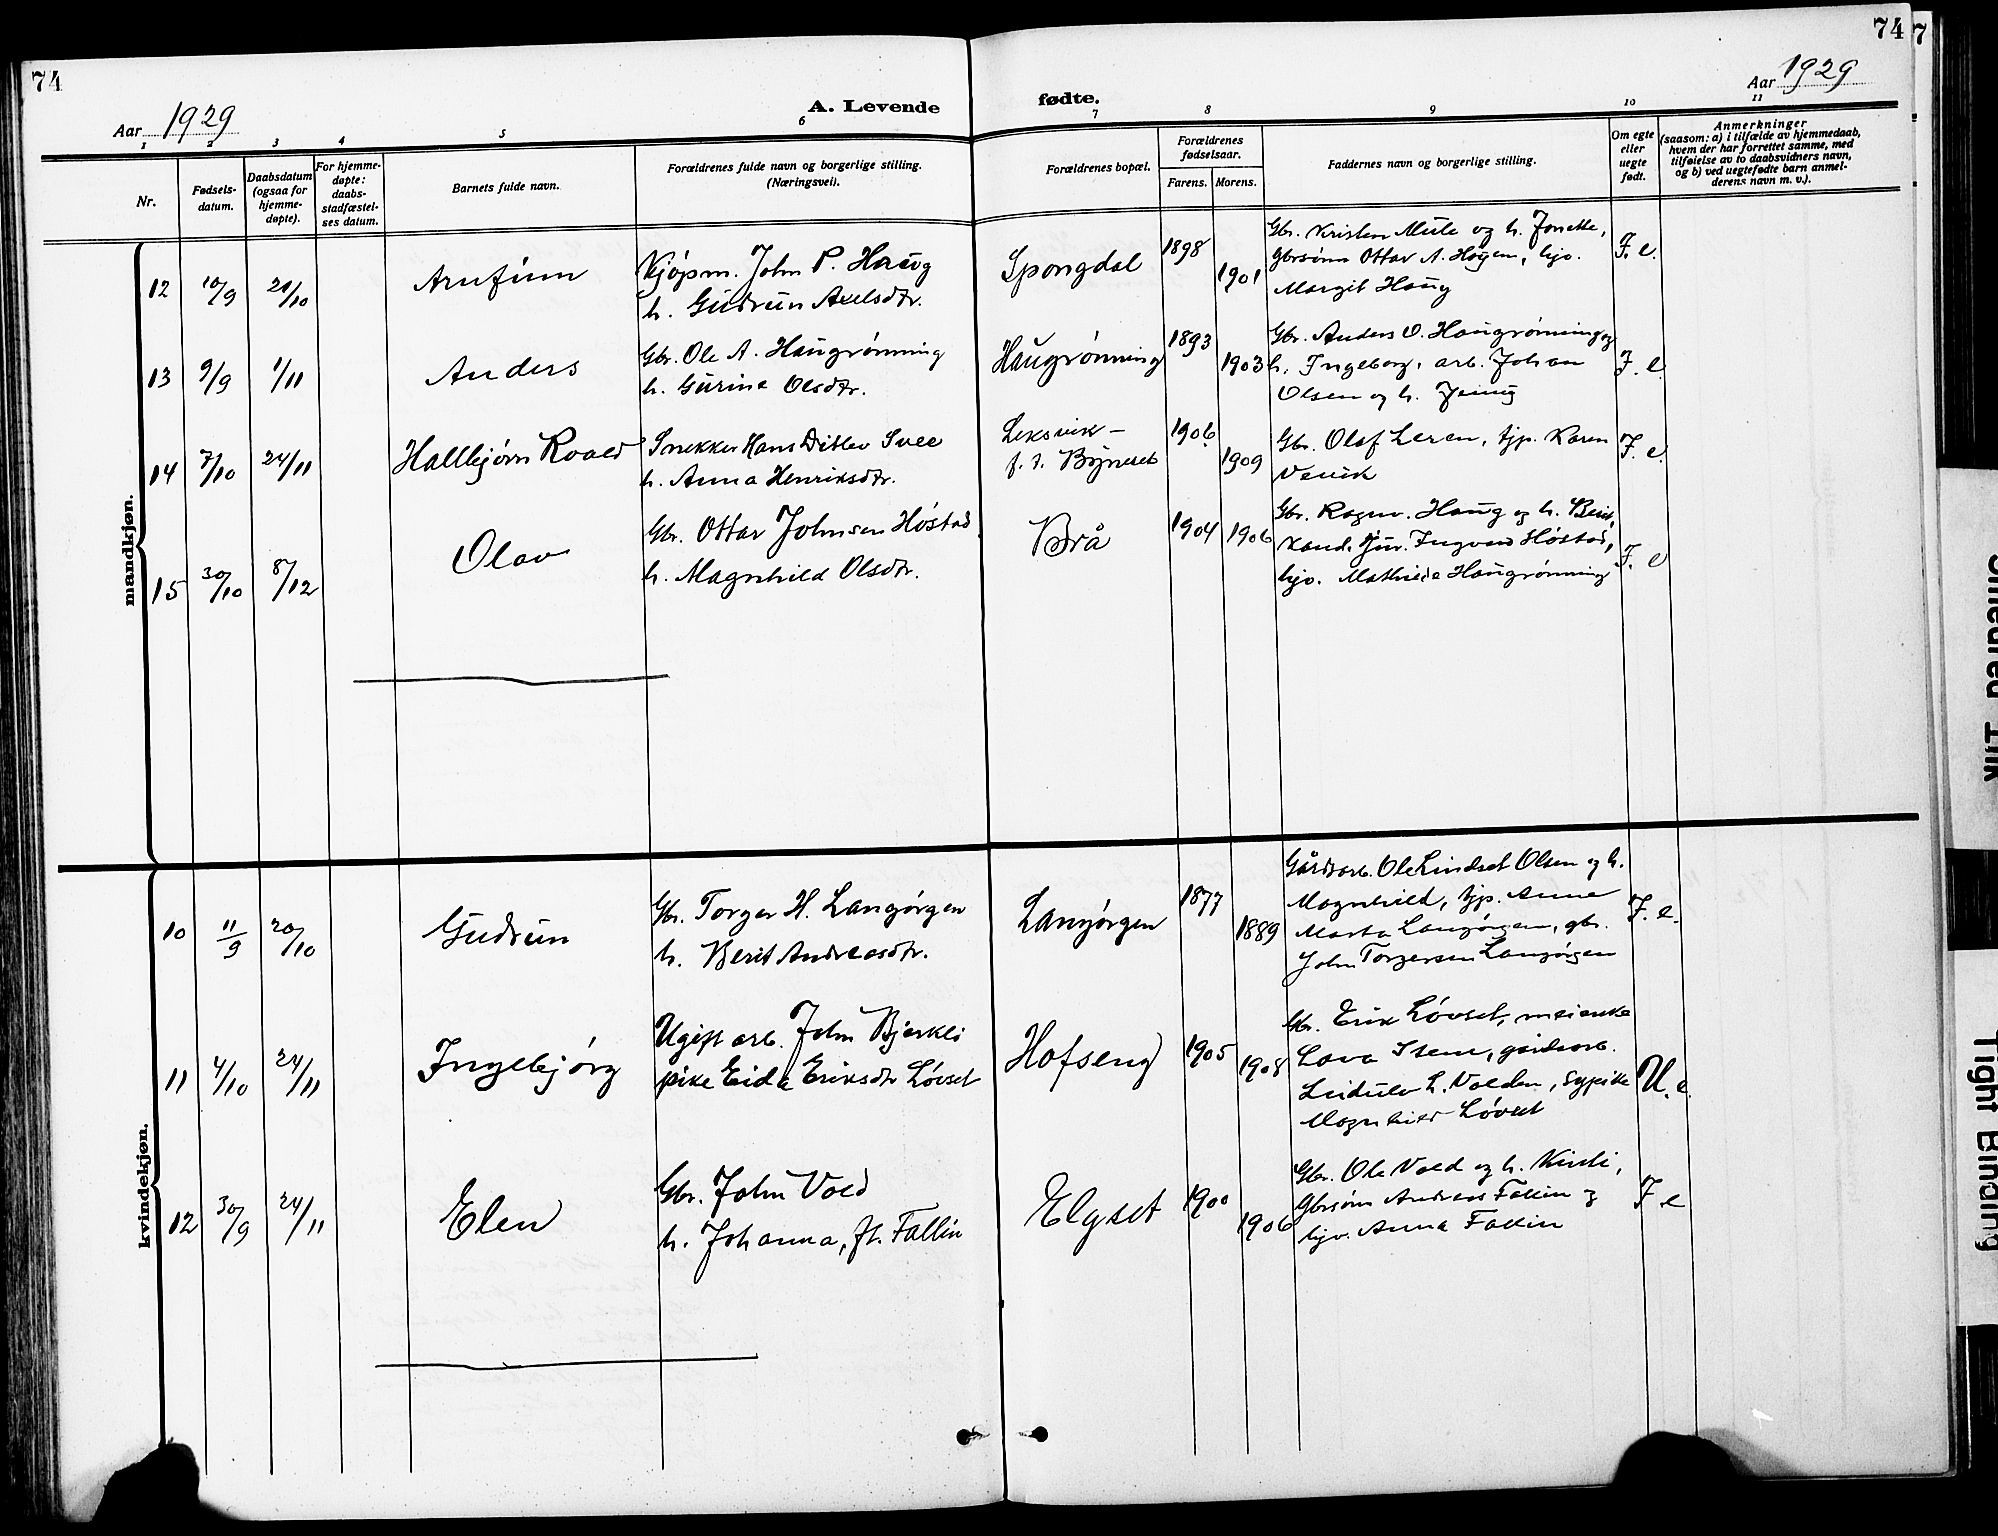 74
74
7
Aar 1929
A. Levende
fødte.
Aar 1929
1 2 3 4 5 6 7 8 9 10 11
Nr.
Fødsels-
datum.
Daabsdatum
(ogsaa for
hjemme-
døpte).
For hjemme-
døpte:
daabs-
stadfæstel-
ses datum.
Barnets fulde navn.
Forældrenes fulde navn og borgerlige stilling.
(Næringsvei).
Forældrenes bopæl.
Forældrenes
fødselsaar.
Farens. Morens.
Faddernes navn og borgerlige stilling.
Om egte
eller
uegte
født.
Anmerkninger
(saasom: a) i tilfælde av hjemmedaab,
hvem der har forrettet samme, med
tilføielse av to daabsvidners navn,
og b) ved uegtefødte barn anmel-
derens navn m. v.).
mandkjøn.
12 10/9 20/10 Arnfinn
Kjøpm. John P. Haug
h. Gudrun Axelsdtr.
Spongdal 1898 1901
Gbr. Kristen Mule og h. Jonette,
gbrsønn Ottar A. Hogen, hjv.
Margit Haug
F. e.
13 9/9 1/11 Anders
Gbr. Ole A. Haugrønning
h. Gurine Olsdtr.
Haugrønning 1893 1903
Gbr. Anders O. Haugrønning og
h. Ingeborg, arb. Johan
Olsen og h. Jenny
F. e.
14 7/10 24/11 Hallbjørn Roald
Snekker Hans Ditlev Svee
h. Anna Henriksdtr.
Leksvik –
f. t. Byneset
1906 1909
Gbr. Olaf Leren, tjp. Karen
F. e.
15 30/10 8/12 Olav
Gbr. Ottar Johnsen Høstad
h. Magnhild Olsdtr.
Brå 1904 1906
Gbr. Ragnv. Haug og h. Berit,
kand. jur. Ingvald Høstad,
hjv. Mathilde Haugrønning
F. e
kvindekjøn.
10 11/9 20/10 Gudrun
Gbr. Torger H. Langørgen
h. Berit Andreasdtr.
Langørgen 1877 1889
Gårdsarb. Ole Lindset Olsen og h.
Magnhild, tjp. Anne
Marta Langørgen, gbr.
John Torgersen Langørgen
F. e.
11 4/10 24/11 Ingebjørg
Ugift arb. John Bjerkli
pike Eida Eriksdtr Løvset
Hofseng 1905 1908
Gbr. Erik Løvset, meierske
Lava Stene, gårdsarb.
Leidulv L. Volden, sypike
Magnhild Løvset
U. e.
12 30/9 24/11 Elen
Gbr. John Vold
h. Johanna, f. Fallin
Elgset 1900 1906
Gbr. Ole Vold og h. Kirsti,
Gbrsønn Andreas Fallin og
hjv. Anna Fallin
F e
Smeared Ink
Tight Binding